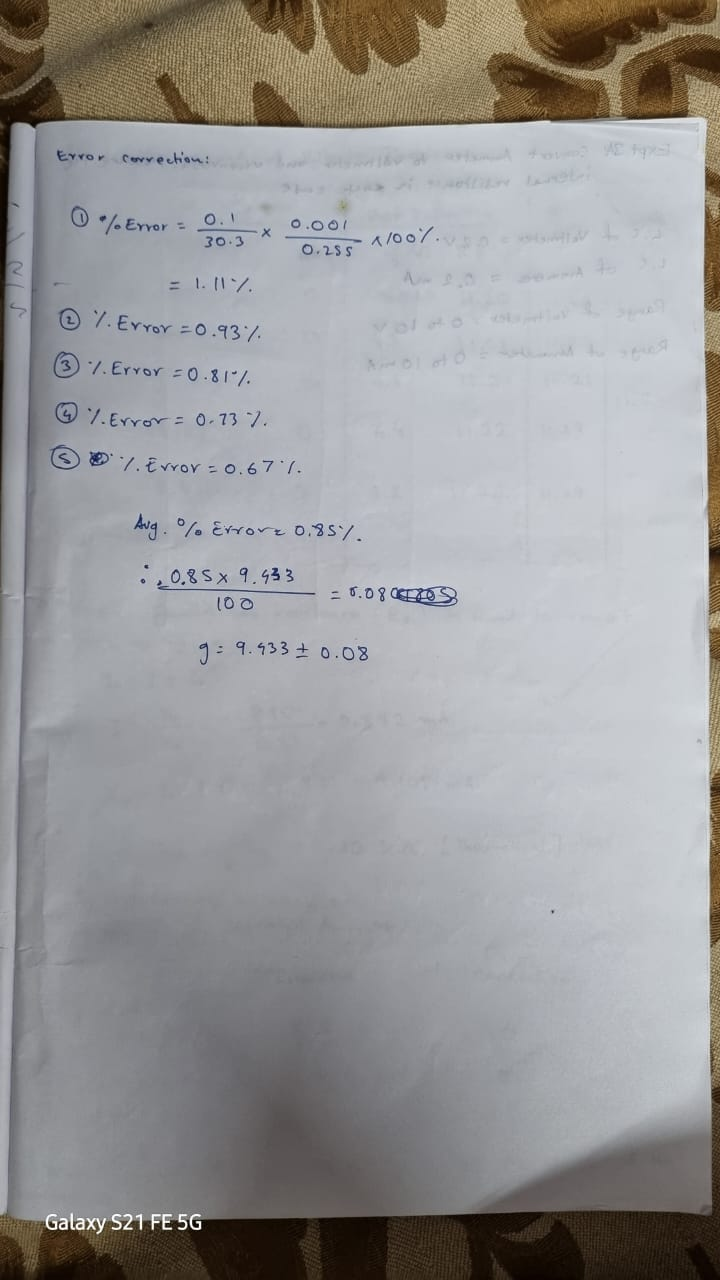 Error correction:
① % Error = 0.1/30.3 × 0.001/0.255 × 100%.
= 1.11%.
② % Error = 0.93%.
③ % Error = 0.81%.
④ % Error = 0.73%.
⑤ % Error = 0.67%.
Avg. % Error = 0.85%.
∴ 0.85 × 9.433/100 = 0.08
g = 9.433 ± 0.08
Galaxy S21 FE 5G